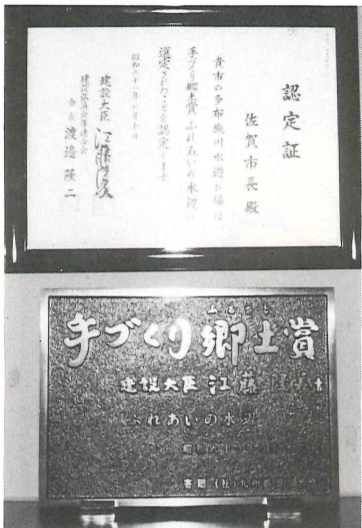 認定証
佐賀市長殿
貴市の多布施川水遊び場は
手づくり郷土賞ふれあいの水辺に
選定されたことを認定します
昭和六十一年七月十日
建設大臣
会長 渡邉隆二
ふるさと
手づくり郷土賞
建設大臣 江藤隆
ふれあいの水辺
昭和
寄贈 (社)九州